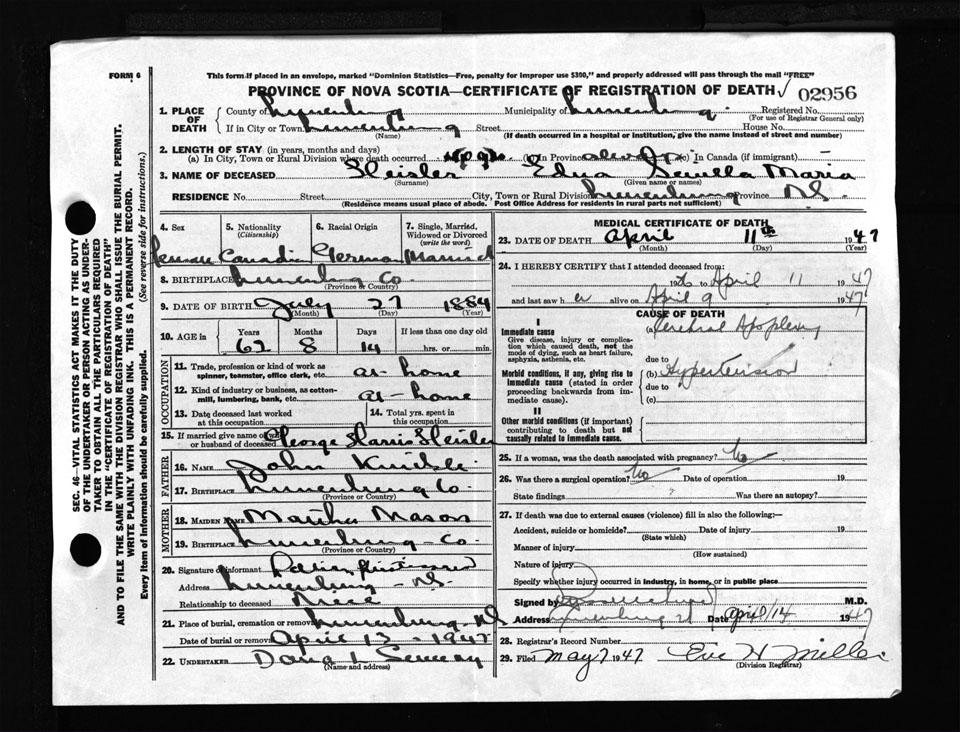 FORM 6
This form if placed in an envelope, marked "Dominion Statistics—Free, penalty for improper use $300," and properly addressed will pass through the mail "FREE"
PROVINCE OF NOVA SCOTIA—CERTIFICATE OF REGISTRATION OF DEATH ✓ 02956
1. PLACE OF DEATH
County of Lunenburg Municipality of Lunenburg. Registered No.
(For use of Registrar General only)
If in City or Town Lunenburg Street House No.
(Name) (If death occurred in a hospital or institution, give the name instead of street and number)
2. LENGTH OF STAY (in years, months and days)
(a) In City, Town or Rural Division where death occurred (b) in Province (c) In Canada (if immigrant)
3. NAME OF DECEASED Heisler Edna Sevilla Maria
(Surname) (Given name or names)
RESIDENCE No. Street City, Town or Rural Division Lunenburg Province NS.
(Residence means usual place of abode. Post Office Address for residents in rural parts not sufficient)
4. Sex 5. Nationality (Citizenship) 6. Racial Origin 7. Single, Married, Widowed or Divorced (write the word)
Female Canadian German Married
8. BIRTHPLACE Lunenburg Co.
(Province or Country)
9. DATE OF BIRTH July 27 1884
(Month) (Day) (Year)
10. AGE in Years Months Days If less than one day old
62 8 14 hrs. or min.
OCCUPATION
11. Trade, profession or kind of work as spinner, teamster, office clerk, etc. at home
12. Kind of industry or business, as cotton-mill, lumbering, bank, etc. at home
13. Date deceased last worked at this occupation 14. Total yrs. spent in this occupation
15. If married give name of wife or husband of deceased George Harris Heisler
FATHER
16. NAME John Knickle
17. BIRTHPLACE Lunenburg Co.
(Province or Country)
MOTHER
18. MAIDEN NAME Martha Mason
19. BIRTHPLACE Lunenburg Co.
(Province or Country)
20. Signature of informant
Address Lunenburg NS.
Relationship to deceased Niece
21. Place of burial, cremation or removal Lunenburg, NS
Date of burial or removal April 13 - 1947
22. UNDERTAKER Dana L Sweeny
(Name and address)
MEDICAL CERTIFICATE OF DEATH
23. DATE OF DEATH April 11th 1947
(Month) (Day) (Year)
24. I HEREBY CERTIFY that I attended deceased from:
19 to April 11 1947
and last saw h er alive on April 9 1947
CAUSE OF DEATH
I
Immediate cause (a) Cerebral Apoplexy
Give disease, injury or complication which caused death, not the mode of dying, such as heart failure, asphyxia, asthenia, etc.
due to
Morbid conditions, if any, giving rise to immediate cause (stated in order proceeding backwards from immediate cause). (b) Hypertension
due to
(c)
II
Other morbid conditions (if important) contributing to death but not causally related to immediate cause.
25. If a woman, was the death associated with pregnancy? No
26. Was there a surgical operation? No Date of operation 19
State findings Was there an autopsy?
27. If death was due to external causes (violence) fill in also the following:—
Accident, suicide or homicide? Date of injury 19
(State which)
Manner of injury
(How sustained)
Nature of injury
Specify whether injury occurred in industry, in home, or in public place
Signed by M.D.
Address Lunenburg Date April/14 1947
28. Registrar's Record Number
29. Filed May 7 1947 Eve H Miller
(Division Registrar)
SEC. 46—VITAL STATISTICS ACT MAKES IT THE DUTY
OF THE UNDERTAKER OR PERSON ACTING AS UNDER-
TAKER TO OBTAIN ALL THE PARTICULARS REQUIRED
IN THE "CERTIFICATE OF REGISTRATION OF DEATH"
AND TO FILE THE SAME WITH THE DIVISION REGISTRAR WHO SHALL ISSUE THE BURIAL PERMIT.
WRITE PLAINLY WITH UNFADING INK. THIS IS A PERMANENT RECORD.
Every item of information should be carefully supplied. (See reverse side for instructions.)